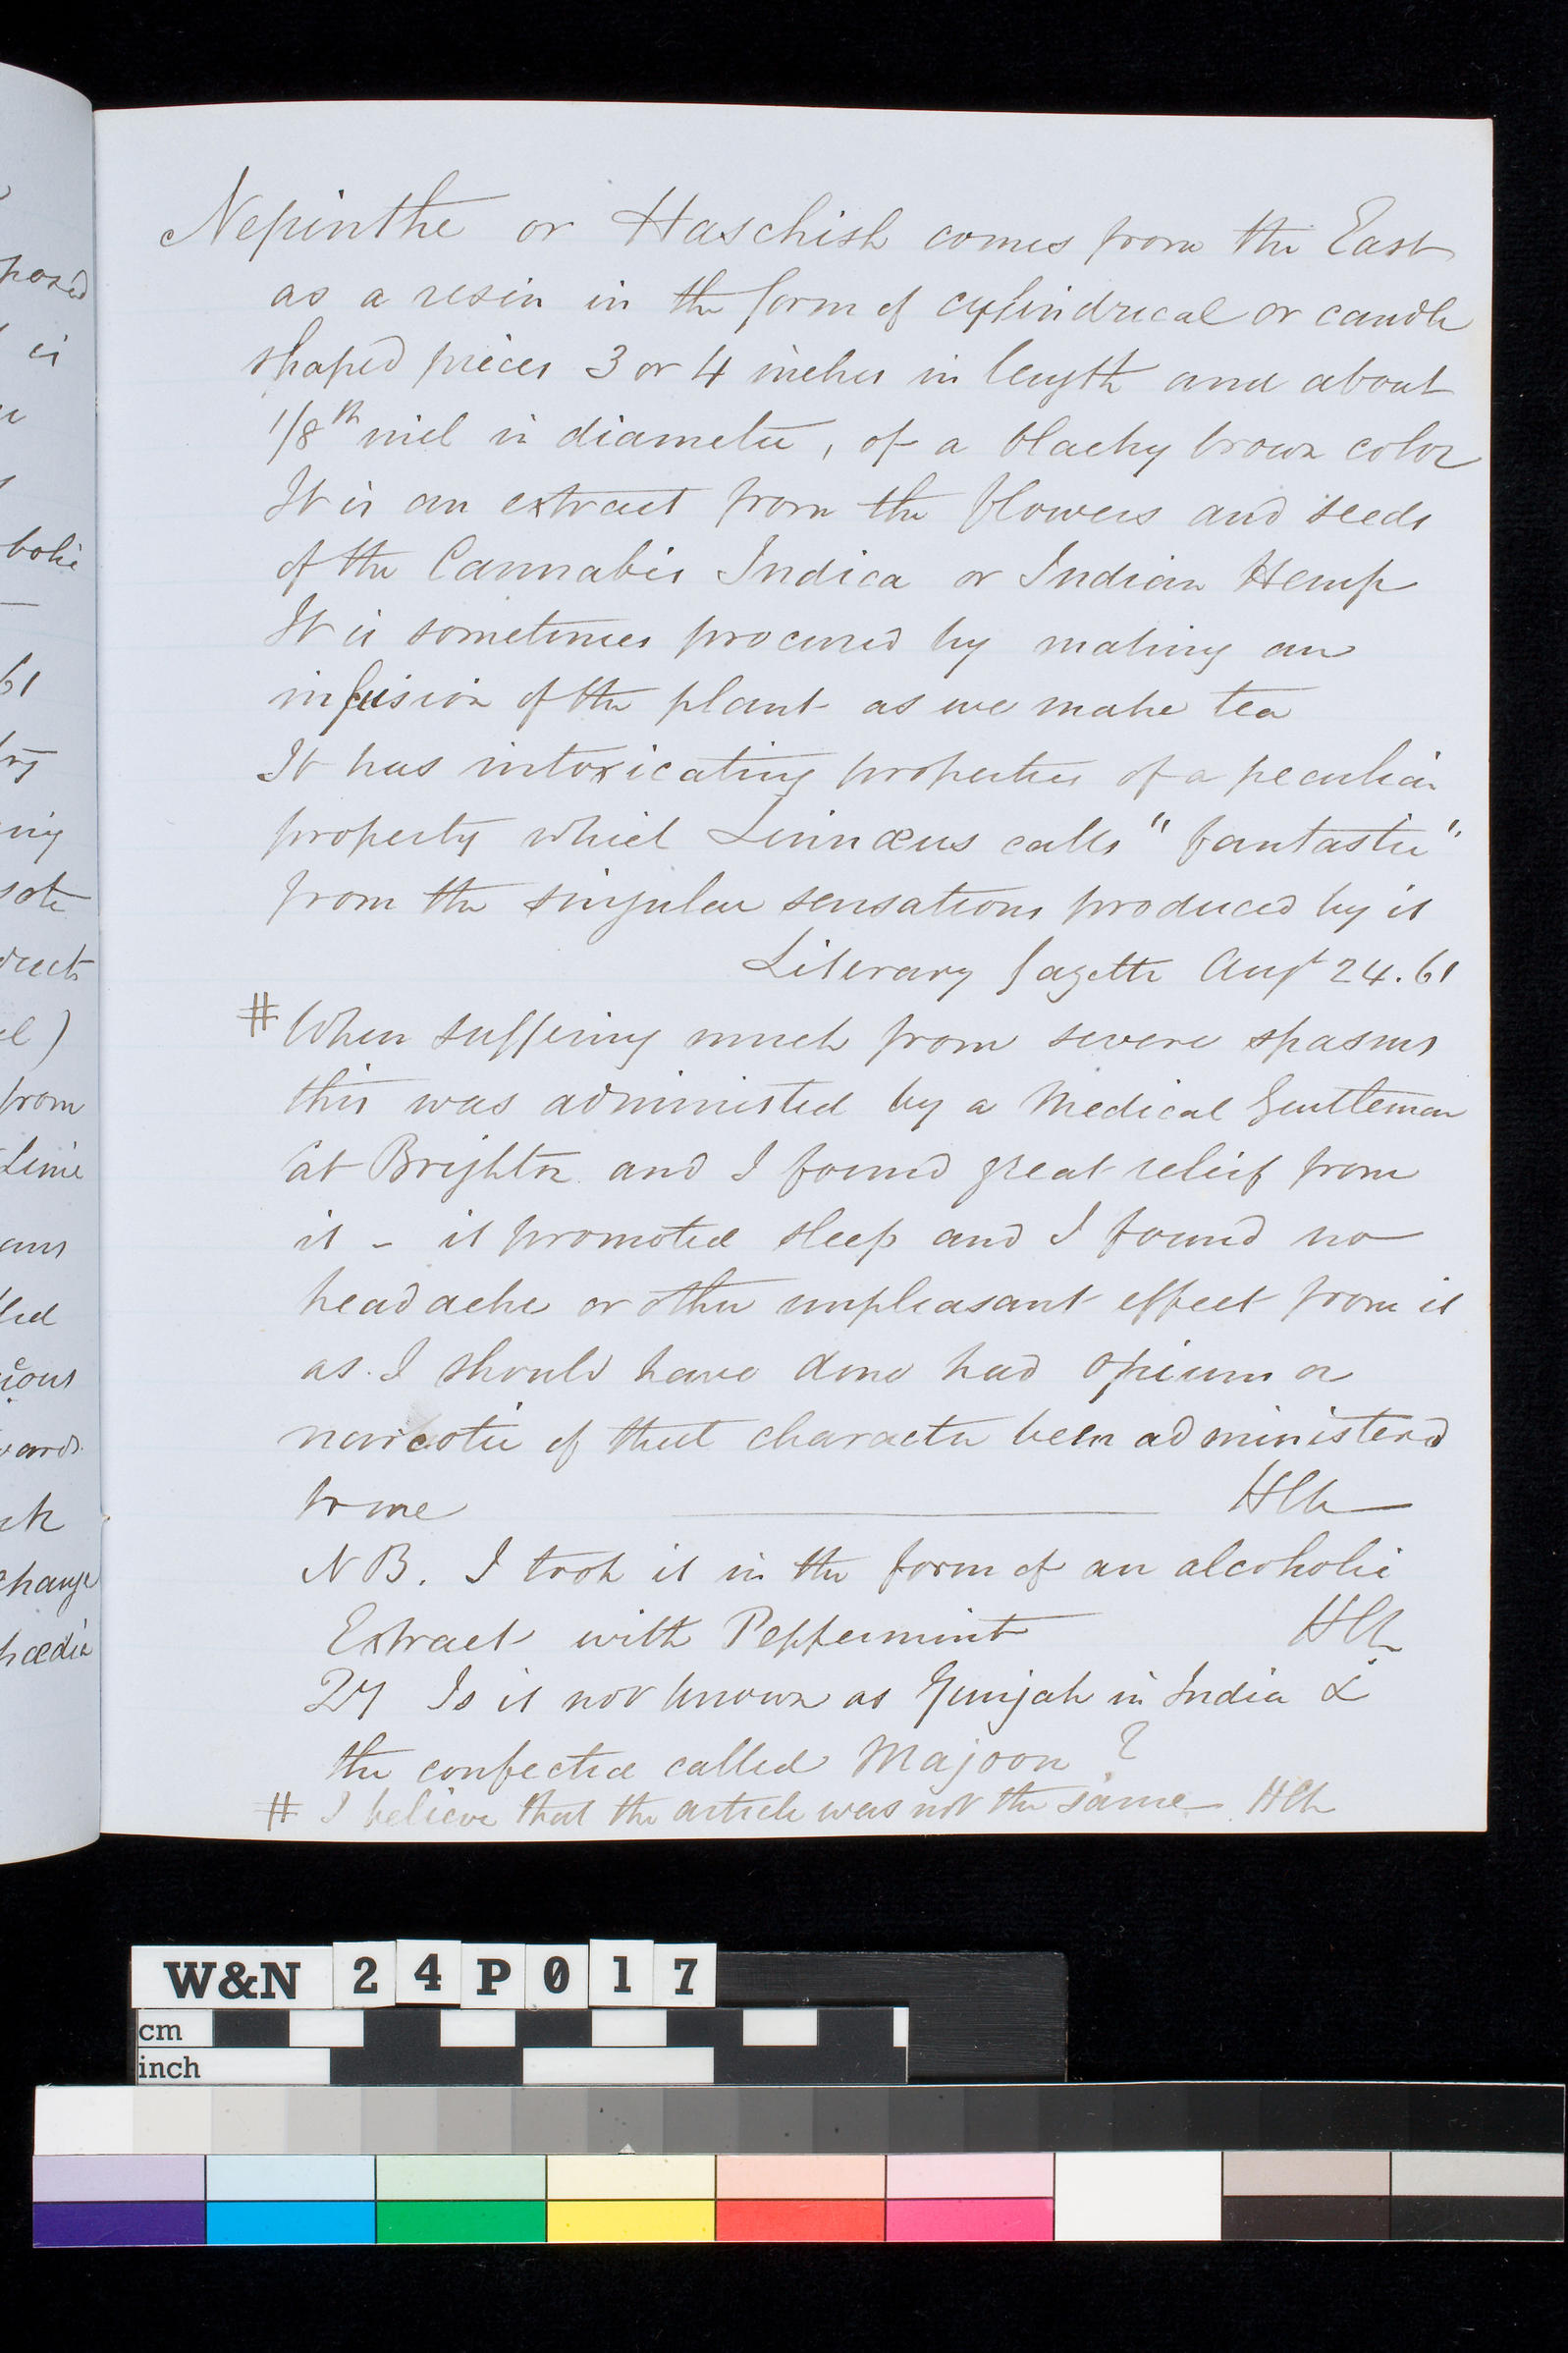 Nepinthe or Haschish comes from the East
as a resin in the form of cylindrical or candle
shaped pieces 3 or 4 inches in length and about
1/8th inch in diameter, of a blacky brown color
It is an extract from the flowers and seeds
of the Cannabis Indica or Indian Hemp
It is sometimes procured by making an
infusion of the plant as we make tea
It has intoxicating properties of a peculiar
property which Linnæus calls "fantastic"
from the singular sensations produced by it
Literary Gazette Augt 24. 61
# When suffering much from severe spasms
this was administed by a Medical Gentleman
at Brighton and I found great relief from
it - it promoted sleep and I found no
headache or other unpleasant effect from it
as I should have done had opium or
narcotic of that character been administerd
to me HCN
NB. I took it in the form of an alcoholic
Extract with Peppermint HCN
Is it not known as Gunjah in India &
the confected called Majoon ?
# I believe that the article was not the same HCN
posed
is
bolic
61
ing
direct
from
Lime
ans
led
cious
wards
change
pædia
W&N 24P017
cm
inch